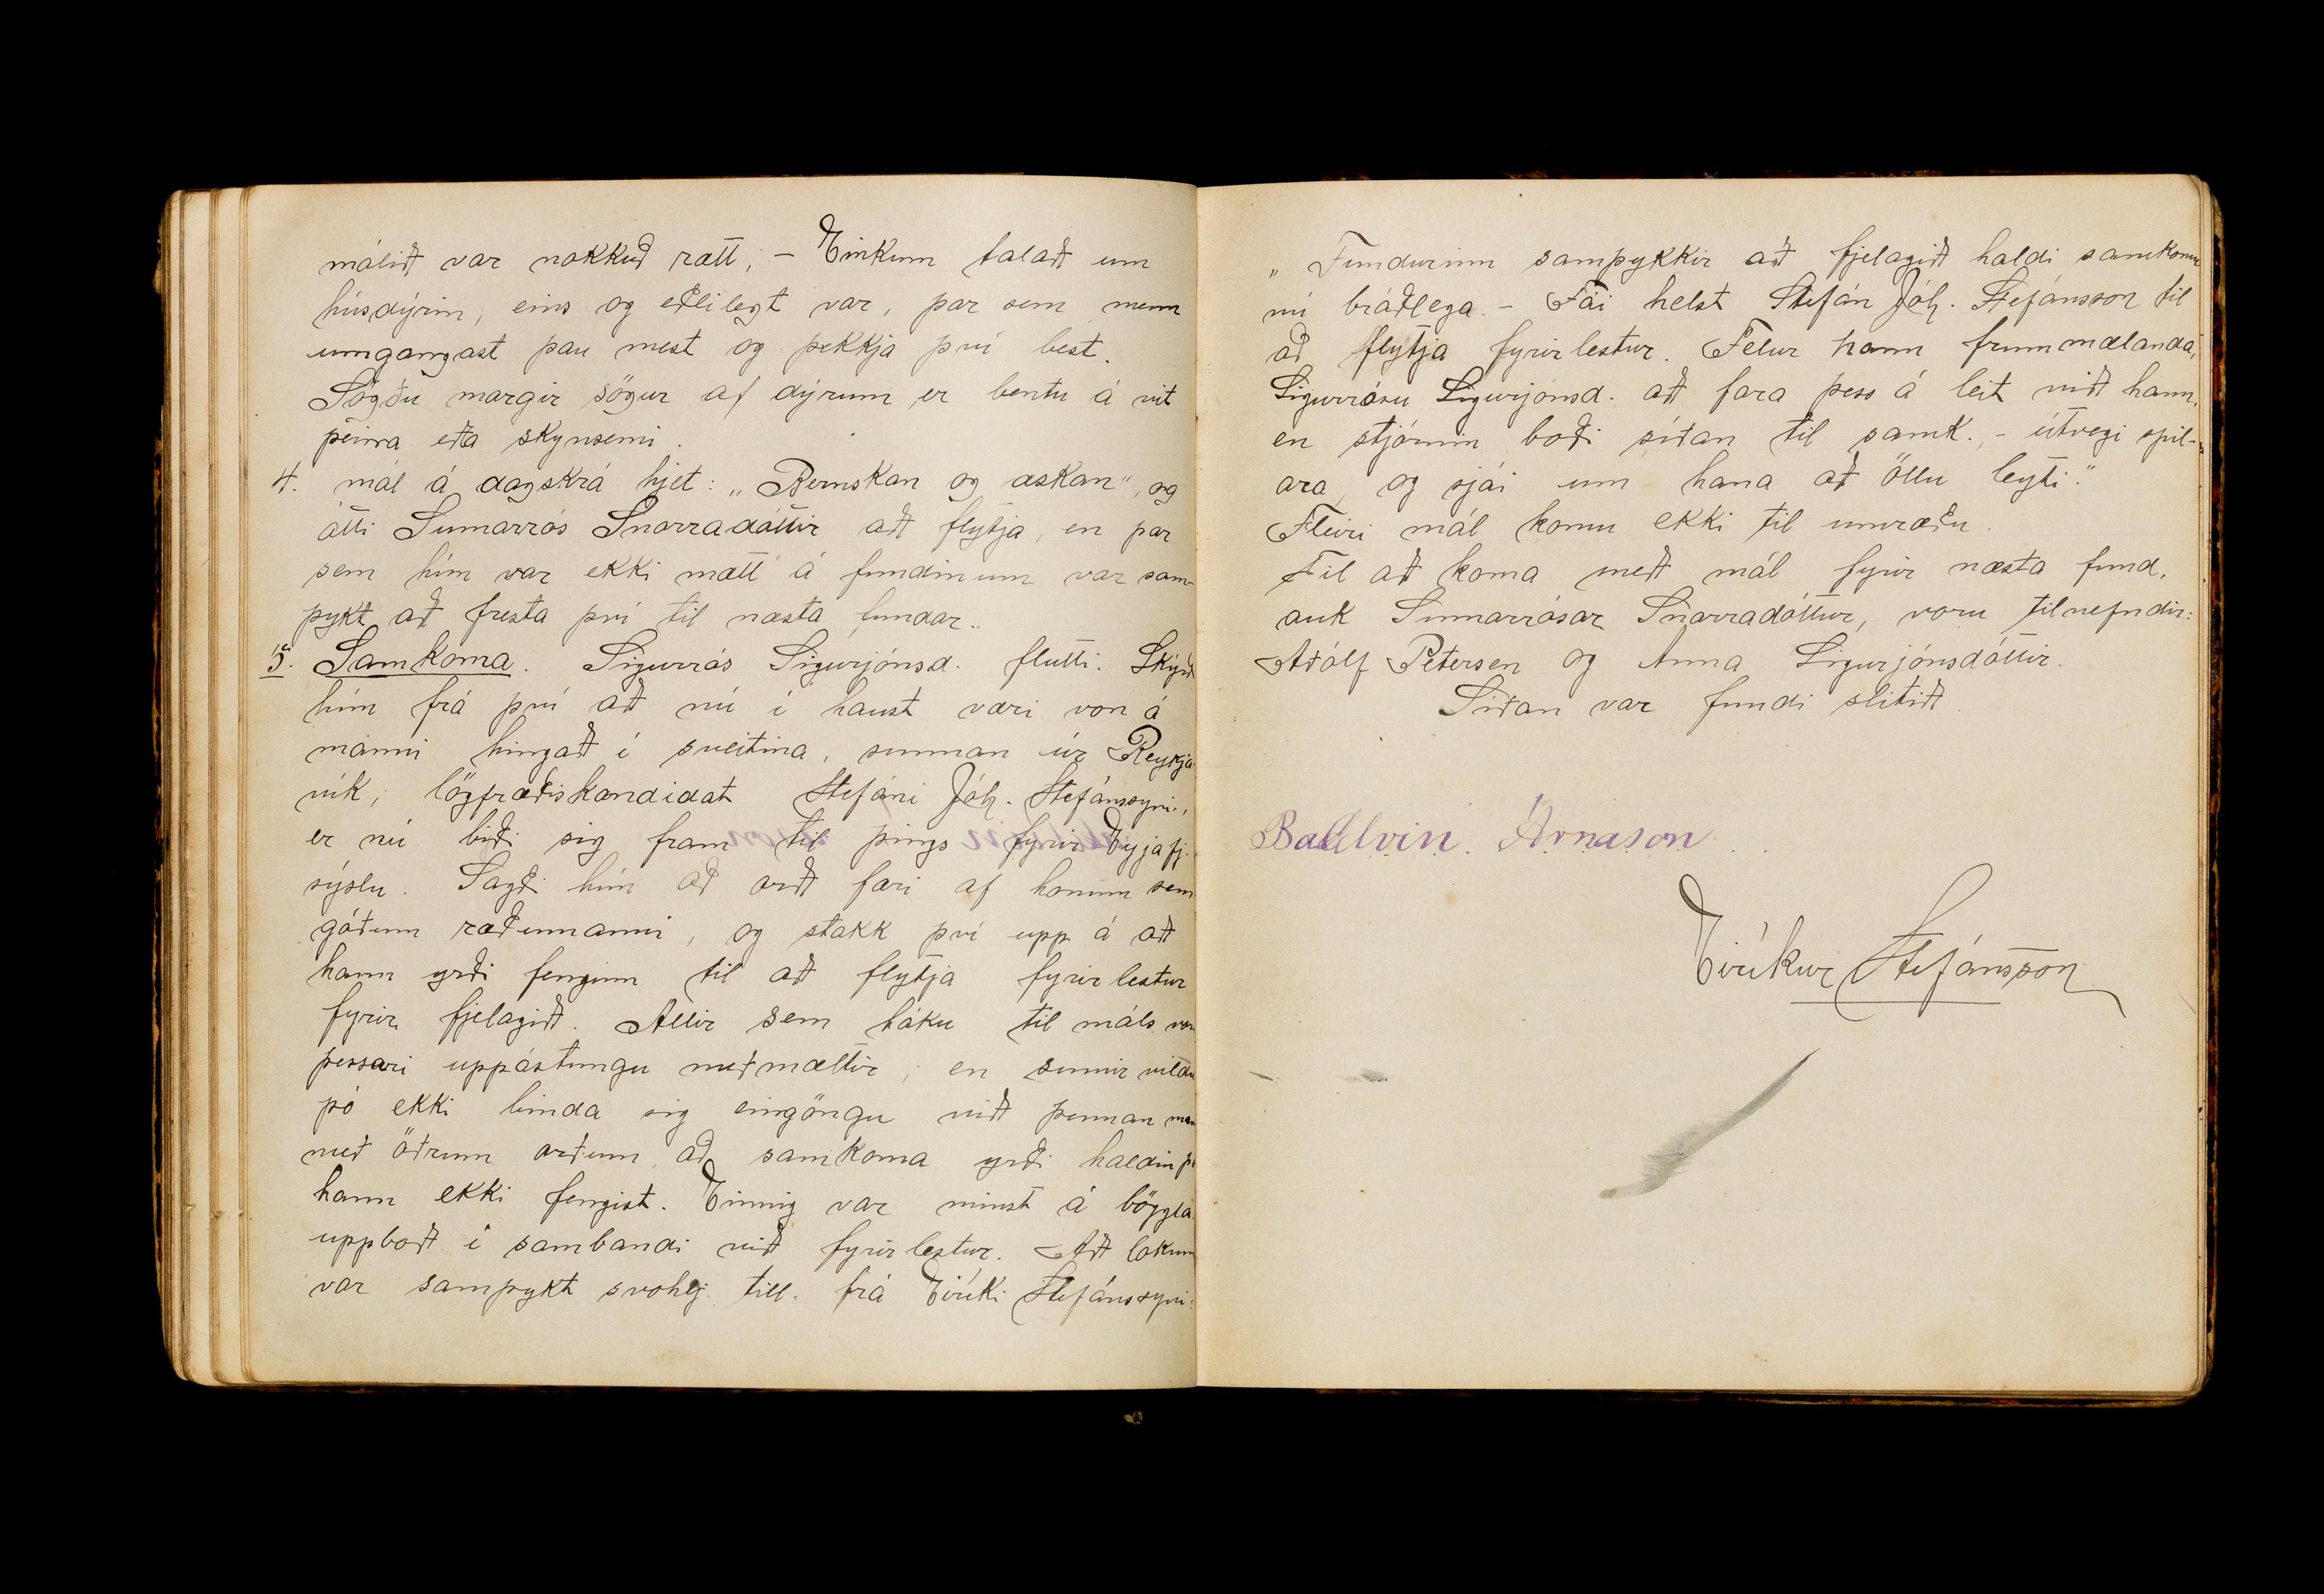 málið var nokkuð rætt, – Einkum talað um
húsdýrin, eins og eðlilegt var, þar sem menn
umgangast þau mest og þekkja því best.
Sögðu margir sögur af dýrum er bentu á vit
þeirra eða skynsemi.
4. mál á dagskrá hjet: „Bernskan og æskan", og
átti Sumarrós Snorradóttir að flytja, en þar
sem hún var ekki mætt á fundinum var sam-
þykt að fresta því til næsta fundar.
5. Samkoma. Sigurrós Sigurjónsd. flutti. Skýrði
hún frá því að nú í haust væri von á
manni hingað í sveitina, sunnan úr Reykja-
vík, lögfræðiskandidat Stefáni Jóh. Stefánssyni,
er nú biði sig fram til þings fyrir Eyjafj.
sýslu. Sagði hún að orð færi af honum sem
góðum ræðumanni, og stakk því upp á að
hann yrði fenginn til að flytja fyrirlestur
fyrir fjelagið. Allir sem tóku til máls voru
þessari uppástungu meðmæltir, en sumir vildu
þó ekki binda sig eingöngu við þennan mann
með öðrum orðum að samkoma yrði haldin þó
hann ekki fengist. Einnig var minst á böggla-
uppboð í sambandi við fyrirlestur. Að lokum
var samþykt svohlj. till. frá Eiríki Stefánssyni:
„Fundurinn samþykkir að fjelagið haldi samkomu
nú bráðlega. – Fái helst Stefán Jóh. Stefánsson til
að flytja fyrirlestur. Felur hann frummælanda,
Sigurrósu Sigurjónsd. að fara þess á leit við hann,
en stjórnin boði síðan til samk., – útvegi spil-
ara, og sjái um hana að öllu leyti."
Fleiri mál komu ekki til umræðu.
Til að koma með mál fyrir næsta fund,
auk Sumarrósar Snorradóttur, voru tilnefndir:
Aðólf Petersen og Anna Sigurjónsdóttir.
Síðan var fundi slitið.
Baldvin Árnason
Eiríkur Stefánsson